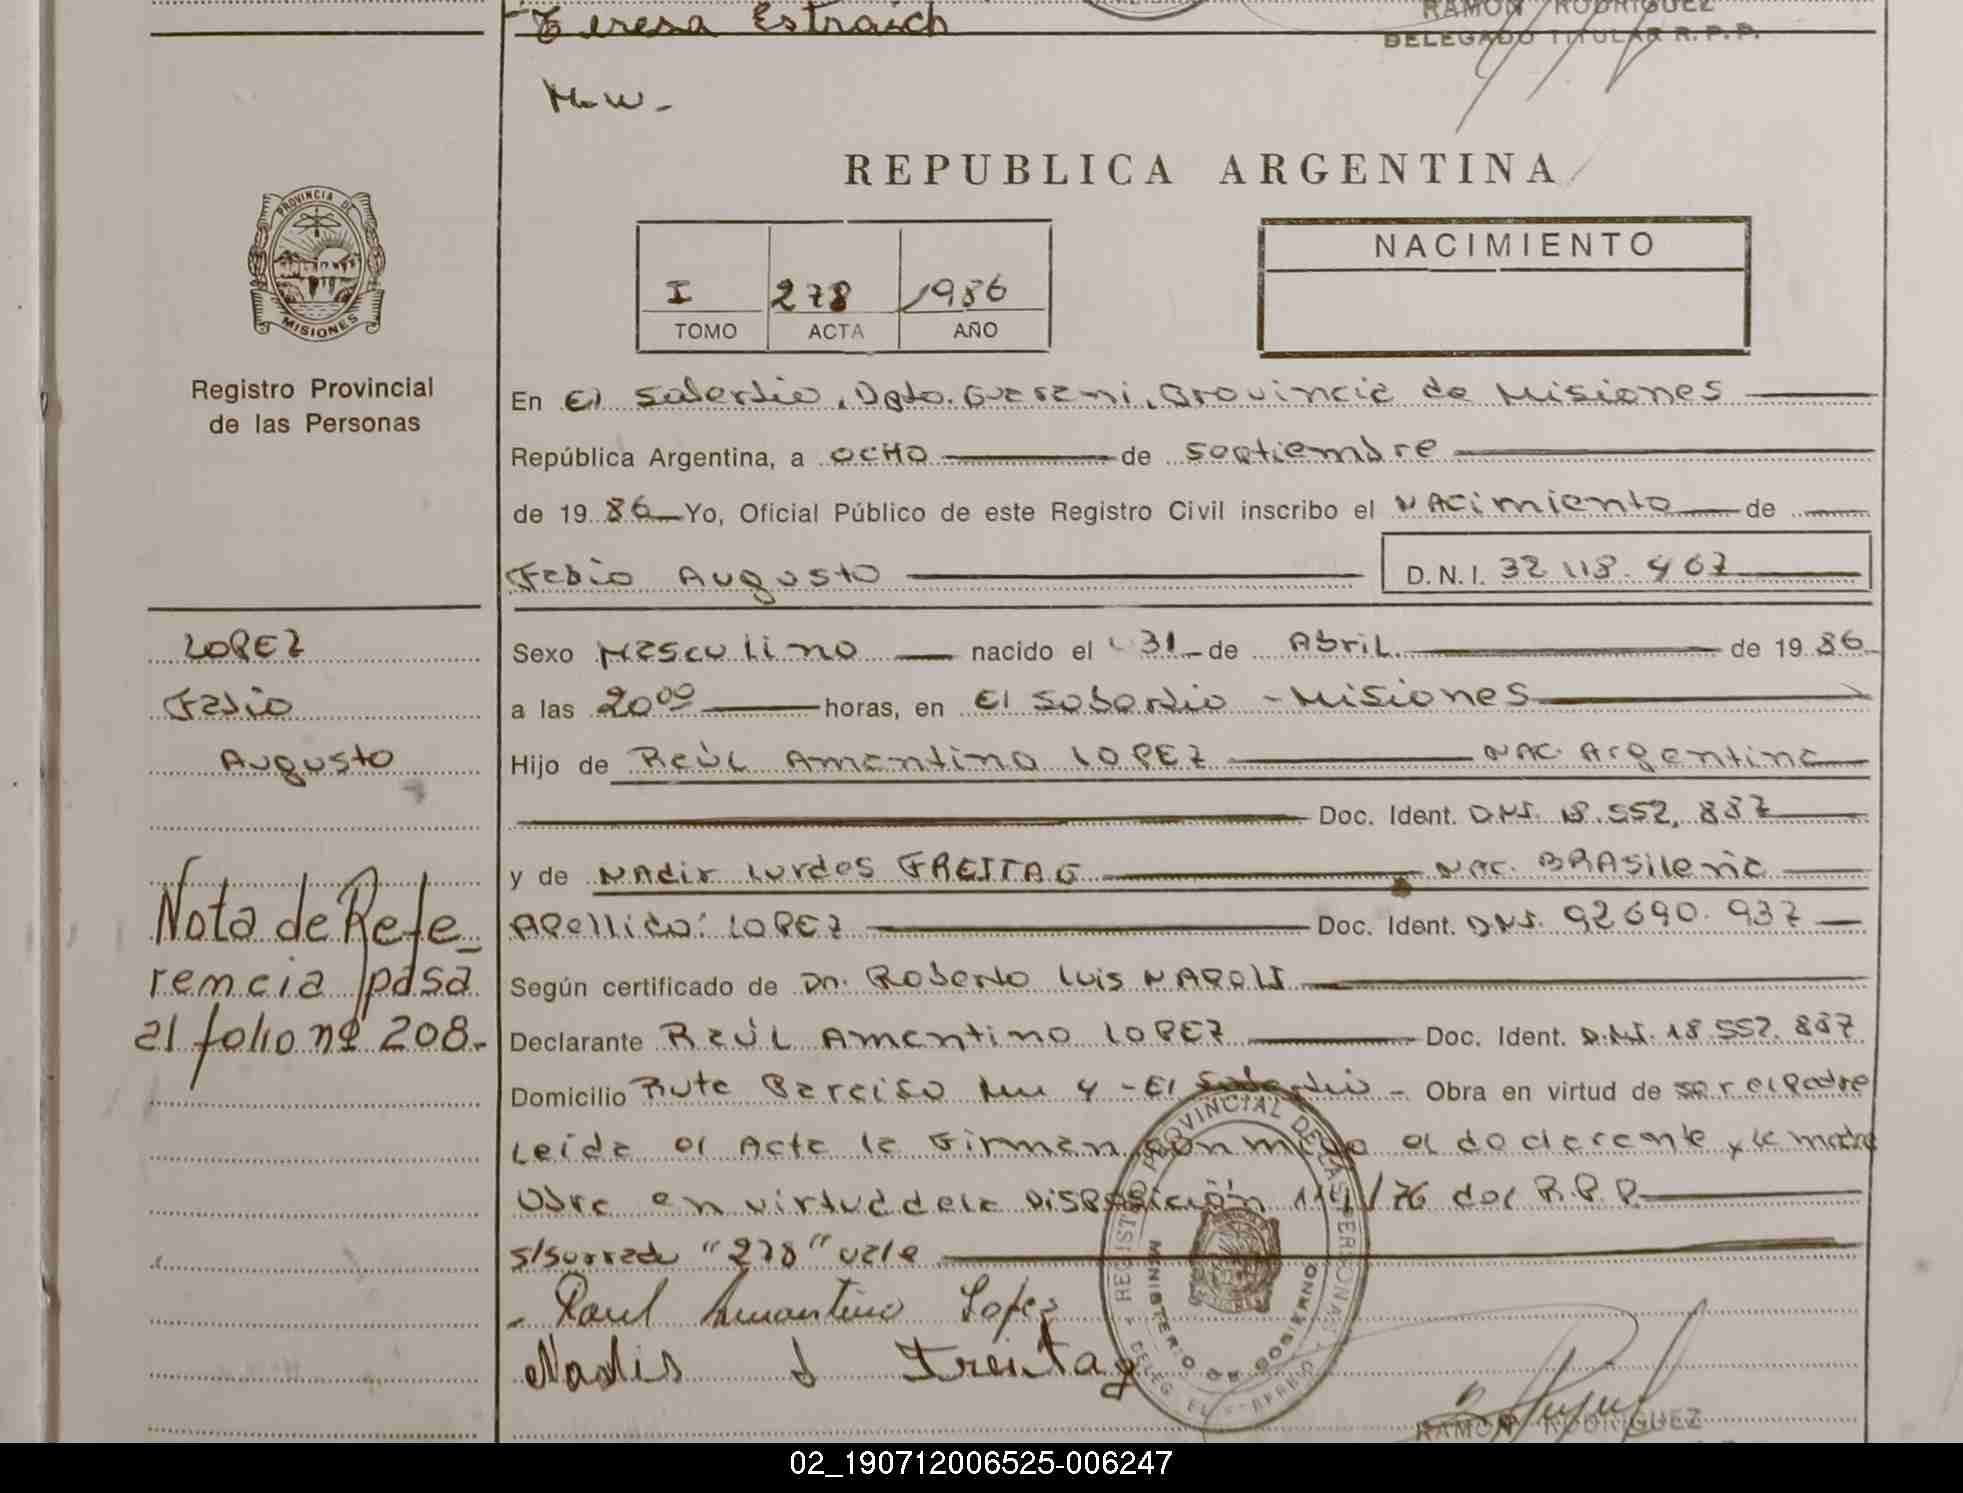 Teresa Estraich
RAMON RODRIGUEZ
DELEGADO TITULAR R.P.P.
M.W-
REPUBLICA ARGENTINA
PROVINCIA DE
MISIONES
Registro Provincial
de las Personas
I 278 1986
TOMO ACTA AÑO
NACIMIENTO
En El Soberbio, Dpto. Guarani, Provincia de Misiones
República Argentina, a OCHO de septiembre
de 1986 Yo, Oficial Público de este Registro Civil inscribo el NAcimiento de
Fabio Augusto
D.N.I. 32 118.467
LOPEZ
Fabio
Augusto
Nota de Refe_
rencia pasa
al folio nº 208.-
Sexo Masculino nacido el 31 de Abril de 1986
a las 20⁰⁰ horas, en El Soberbio - Misiones
Hijo de Raúl Amantino LOPEZ NAC. Argentina
Doc. Ident. D.N.I. 18.552.887
y de NAdir Lurdes FREITAG NAC. BRAsileña
Apellido: LOPEZ Doc. Ident. D.N.I. 92 690.937
Según certificado de Dn. Roberto Luis NAPOLI
Declarante RAÚL Amantino LOPEZ Doc. Ident. D.N.I. 18.552.887
Domicilio Ruta Paraiso km 4 - El Soberbio - Obra en virtud de ser el Padre
Leida el Acta la Firman conmigo el declarante y la madre
Obra en virtud de la Disposición 114/76 del R.P.P.
s/borrado "278" vale
- Raul Amantino Lopez
Nadir L Freitag
REGISTRO PROVINCIAL DE LAS PERSONAS
MINISTERIO DE GOBIERNO
RAMON RODRIGUEZ
02_190712006525-006247